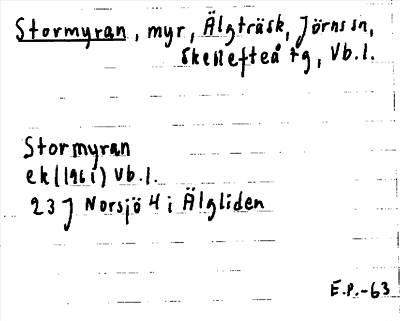 Stormyran, myr, Älgträsk, Jörns sn,
Skellefteå tg, Vb.l.
Stormyran
ek (1961) Vb.l.
23 J Norsjö 4 i Älgliden
E.P.-63